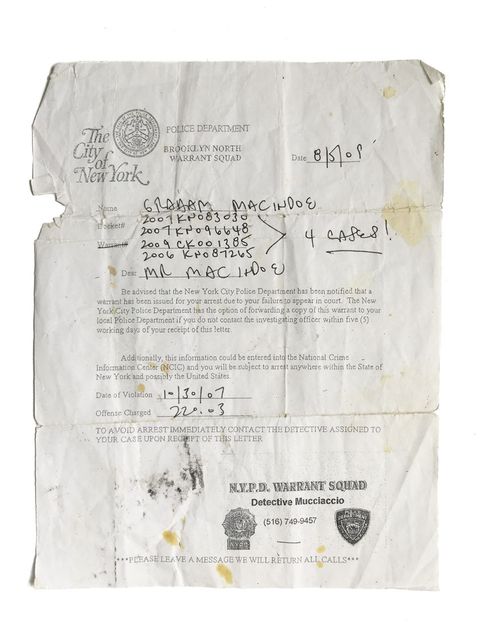 The City of New York
POLICE DEPARTMENT
BROOKLYN NORTH
WARRANT SQUAD
Date 8/5/09
Name GRAHAM MACINDOE
Docket# 2007KN083030
2007KN096648
Warrant# 2009CK001385
2006KN087265
4 CASES!
Dear MR MACINDOE
Be advised that the New York City Police Department has been notified that a
warrant has been issued for your arrest due to your failure to appear in court. The New
York City Police Department has the option of forwarding a copy of this warrant to your
local Police Department if you do not contact the investigating officer within five (5)
working days of your receipt of this letter.
Additionally, this information could be entered into the National Crime
Information Center (NCIC) and you will be subject to arrest anywhere within the State of
New York and possibly the United States.
Date of Violation 10/30/07
Offense Charged 220.03
TO AVOID ARREST IMMEDIATELY CONTACT THE DETECTIVE ASSIGNED TO
YOUR CASE UPON RECEIPT OF THIS LETTER
N.Y.P.D. WARRANT SQUAD
Detective Mucciaccio
(516) 749-9457
***PLEASE LEAVE A MESSAGE WE WILL RETURN ALL CALLS***